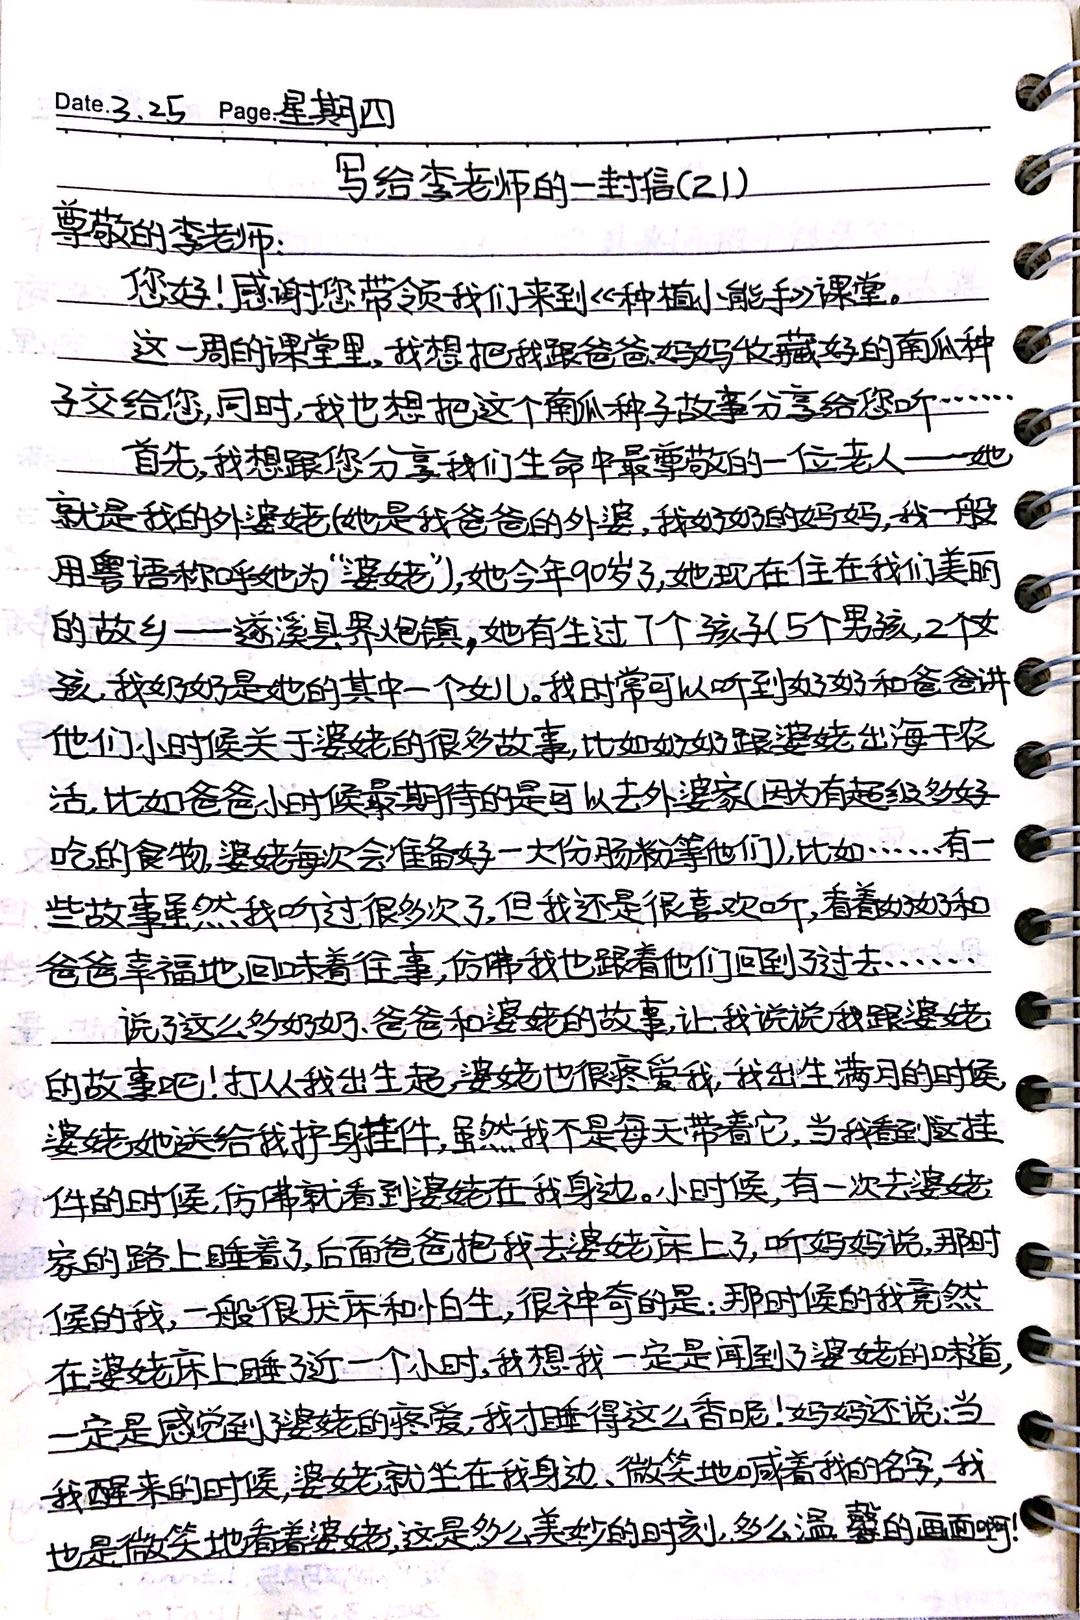 Date.3.25 Page.星期四
写给李老师的一封信(21)
尊敬的李老师:
您好!感谢您带领我们来到《种植小能手》课堂。
这一周的课堂里,我想把我跟爸爸妈妈收藏好的南瓜种
子交给您,同时,我也想把这个南瓜种子故事分享给您听……
首先,我想跟您分享我们生命中最尊敬的一位老人——她
就是我的外婆姥(她是我爸爸的外婆,我奶奶的妈妈,我一般
用粤语称呼她为“婆姥”),她今年90岁了,她现在住在我们美丽
的故乡——遂溪县界炮镇,她有生过7个孩子(5个男孩,2个女
孩,我奶奶是她的其中一个女儿。我时常可以听到奶奶和爸爸讲
他们小时候关于婆姥的很多故事,比如奶奶跟婆姥出海干农
活,比如爸爸小时候最期待的是可以去外婆家(因为有超级多好
吃的食物,婆姥每次会准备好一大份肠粉等他们),比如……有一
些故事虽然我听过很多次了,但我还是很喜欢听,看着奶奶和
爸爸幸福地回味着往事,仿佛我也跟着他们回到了过去……
说了这么多奶奶、爸爸和婆姥的故事,让我说说我跟婆姥
的故事吧!打从我出生起,婆姥也很疼爱我,我出生满月的时候,
婆姥她送给我护身挂件,虽然我不是每天带着它,当我看到这挂
件的时候,仿佛就看到婆姥在我身边。小时候,有一次去婆姥
家的路上睡着了,后面爸爸抱我去婆姥床上了,听妈妈说,那时
候的我,一般很厌床和怕生,很神奇的是:那时候的我竟然
在婆姥床上睡了近一个小时,我想我一定是闻到了婆姥的味道,
一定是感觉到了婆姥的疼爱,我才睡得这么香呢!妈妈还说:当
我醒来的时候,婆姥就坐在我身边、微笑地喊着我的名字,我
也是微笑地看着婆姥,这是多么美妙的时刻,多么温馨的画面啊!